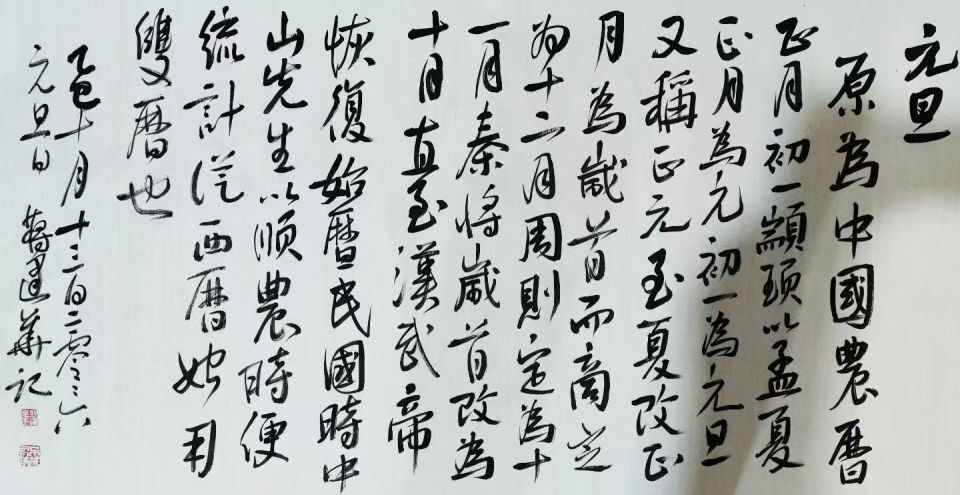 元旦
原為中國農曆
正月初一顓頊以孟夏
正月為元初一為元旦
又稱正元至夏改正
月為歲首而商定
為十二月周則定為十
一月秦將歲首改為
十月直至漢武帝
恢復始曆民國時中
山先生以順農時便
統計從西曆始用
雙曆也
乙巳十月十三日二零二六
元旦日 蔣建華記